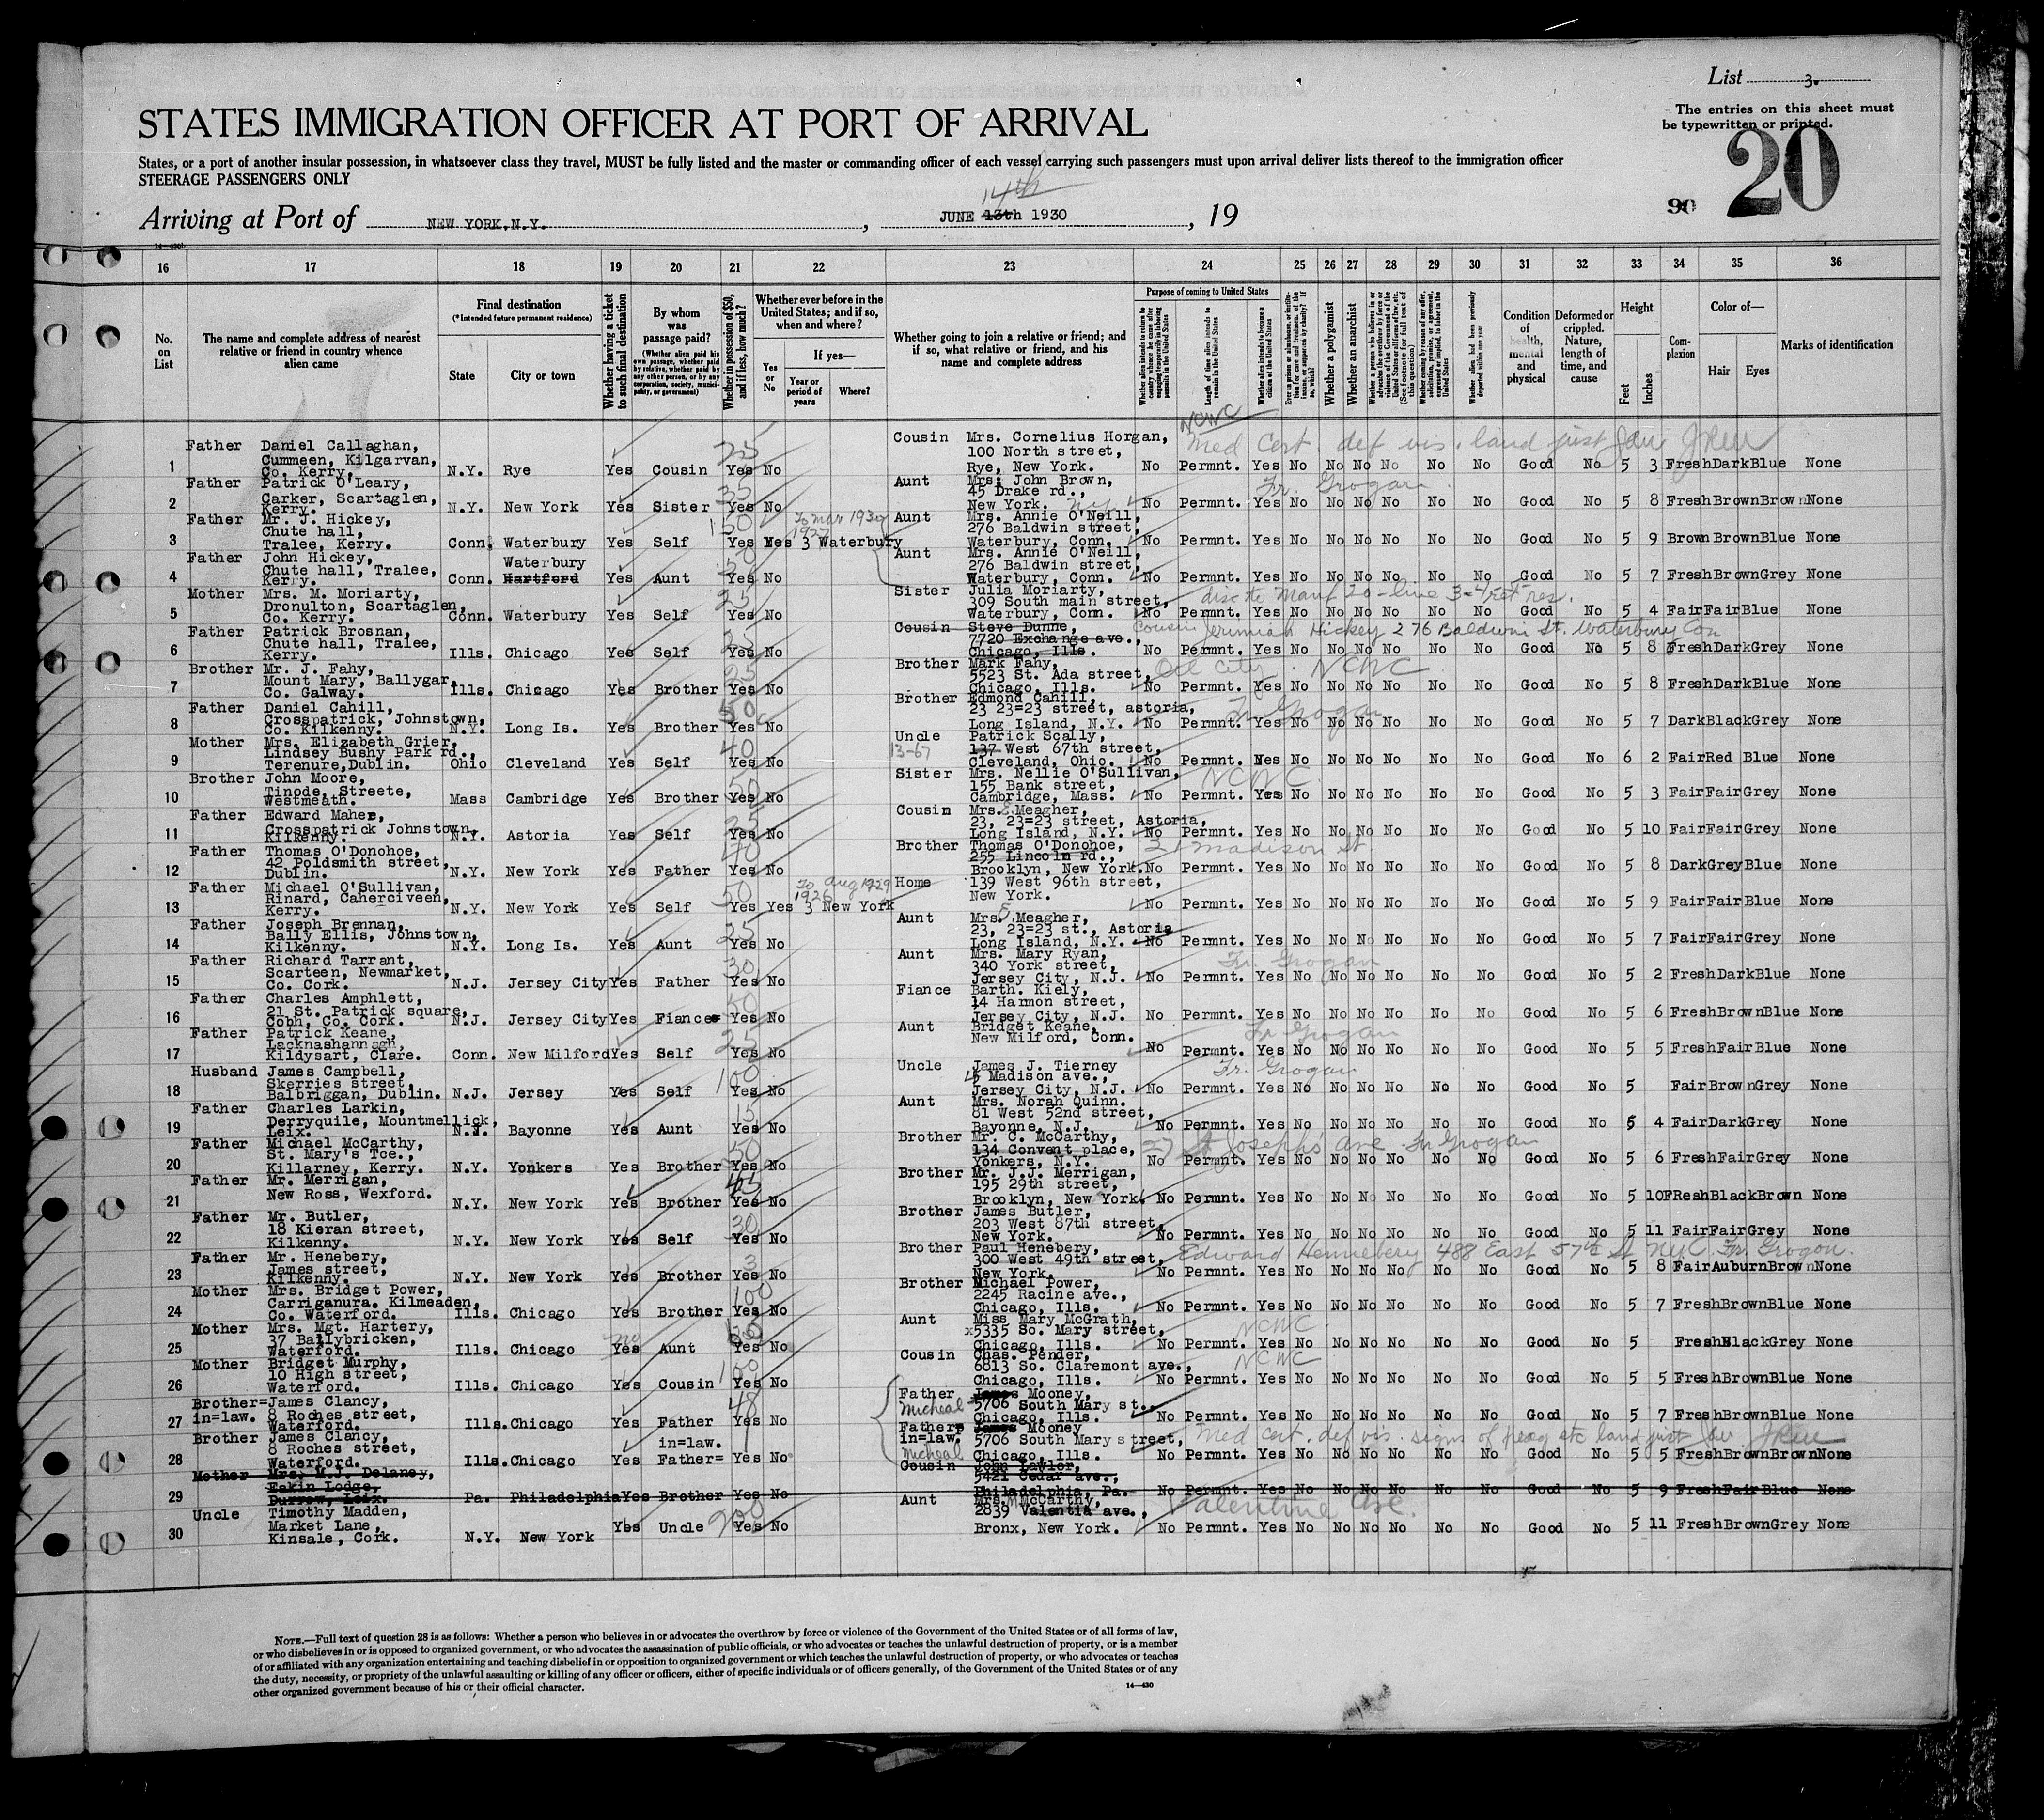 List 3.
The entries on this sheet must
be typewritten or printed.
STATES IMMIGRATION OFFICER AT PORT OF ARRIVAL
States, or a port of another insular possession, in whatsoever class they travel, MUST be fully listed and the master or commanding officer of each vessel carrying such passengers must upon arrival deliver lists thereof to the immigration officer
STEERAGE PASSENGERS ONLY
90 20
14th
Arriving at Port of NEW YORK.N.Y. , JUNE 13th 1930 , 19
16 17 18 19 20 21 22 23 24 25 26 27 28 29 30 31 32 33 34 35 36
No. on List
The name and complete address of nearest relative or friend in country whence alien came
Final destination
(*Intended future permanent residence)
State
City or town
Whether having a ticket to such final destination
By whom was passage paid?
(Whether alien paid his own passage, whether paid by relative, whether paid by any other person, or by any corporation, society, municipality, or government)
Whether in possession of $50, and if less, how much?
Whether ever before in the United States; and if so, when and where?
Yes or No
If yes—
Year or period of years
Where?
Whether going to join a relative or friend; and if so, what relative or friend, and his name and complete address
Purpose of coming to United States
Whether alien intends to return to country whence he came after engaging temporarily in laboring pursuits in the United States
Length of time alien intends to remain in the United States
Whether alien intends to become a citizen of the United States
Whether a polygamist
Whether an anarchist
Condition of health, mental and physical
Deformed or crippled. Nature, length of time, and cause
Height
Feet
Inches
Complexion
Color of—
Hair
Eyes
Marks of identification
NCWC
Med Cert. def vis. land just
1 Father Daniel Callaghan, Cummeen, Kilgarvan, Co. Kerry, N.Y. Rye Yes Cousin 25 Yes No Cousin Mrs. Cornelius Horgan, 100 North street, Rye, New York. No Permnt. Yes No No No No No No Good No 5 3 Fresh Dark Blue None
Fr. Grogan
2 Father Patrick O'Leary, Carker, Scartaglen, Kerry. N.Y. New York Yes Sister 35 Yes No Aunt Mrs. John Brown, 45 Drake rd., New York. No Permnt. Yes No No No No No No Good No 5 8 Fresh Brown Brown None
3 Father Mr. J. Hickey, Chute hall, Tralee, Kerry. Conn. Waterbury Yes Self 150 Yes Yes To Mar 1930 1927 3 Waterbury Aunt Mrs. Annie O'Neill, 276 Baldwin street, Waterbury, Conn. No Permnt. Yes No No No No No No Good No 5 9 Brown Brown Blue None
4 Father John Hickey, Chute hall, Tralee, Kerry. Conn. Waterbury Hartford Yes Aunt 50 Yes No Aunt Mrs. Annie O'Neill, 276 Baldwin street, Waterbury, Conn. No Permnt. Yes No No No No No No Good No 5 7 Fresh Brown Grey None
5 Mother Mrs. M. Moriarty, Dronulton, Scartaglen, Co. Kerry. Conn. Waterbury Yes Self 25 Yes No Sister Julia Moriarty, 309 South main street, Waterbury, Conn. No Permnt. Yes No No No No No No Good No 5 4 Fair Fair Blue None
Cousin Jerimiah Hickey 276 Baldwin St. Waterbury Con
6 Father Patrick Brosnan, Chute hall, Tralee, Kerry. Ills. Chicago Yes Self 25 Yes No Cousin Steve Dunne, 7720 Exchange ave., Chicago, Ills. No Permnt. Yes No No No No No No Good No 5 8 Fresh Dark Grey None
Oil City. NCWC
7 Brother Mr. J. Fahy, Mount Mary, Ballygar, Co. Galway. Ills. Chicago Yes Brother 25 Yes No Brother Mark Fahy, 5523 St. Ada street, Chicago, Ills. No Permnt. Yes No No No No No No Good No 5 8 Fresh Dark Blue None
Fr. Grogan
8 Father Daniel Cahill, Crosspatrick, Johnstown, Co. Kilkenny. N.Y. Long Is. Yes Brother 50 Yes No Brother Edmond Cahill, 23 23=23 street, astoria, Long Island, N.Y. No Permnt. Yes No No No No No No Good No 5 7 Dark Black Grey None
9 Mother Mrs. Elizabeth Grier, Lindsey Bushy Park rd., Terenure,Dublin. Ohio Cleveland Yes Self 40 Yes No Uncle Patrick Scally, 13-67 137 West 67th street, Cleveland, Ohio. No Permnt. Yes No No No No No No Good No 6 2 Fair Red Blue None
NCWC
10 Brother John Moore, Tinode, Streete, Westmeath. Mass Cambridge Yes Brother 50 Yes No Sister Mrs. Nellie O'Sullivan, 155 Bank street, Cambridge, Mass. No Permnt. Yes No No No No No No Good No 5 3 Fair Fair Grey None
11 Father Edward Maher, Crosspatrick Johnstown, Kilkenny. N.Y. Astoria Yes Self 25 Yes No Cousin Mrs. Meagher, 23, 23=23 street, Astoria, Long Island, N.Y. No Permnt. Yes No No No No No No Good No 5 10 Fair Fair Grey None
21 Madison St.
12 Father Thomas O'Donohoe, 42 Poldsmith street, Dublin. N.Y. New York Yes Father Yes No Brother Thomas O'Donohoe, 255 Lincoln rd., Brooklyn, New York. No Permnt. Yes No No No No No No Good No 5 8 Dark Grey Blue None
13 Father Michael O'Sullivan, Rinard, Caherciveen, Kerry. N.Y. New York Yes Self 50 Yes Yes To Aug 1929 1926 3 New York Home 139 West 96th street, New York. No Permnt. Yes No No No No No No Good No 5 9 Fair Fair Blue None
14 Father Joseph Brennan, Bally Ellis, Johnstown, Kilkenny. N.Y. Long Is. Yes Aunt 25 Yes No Aunt Mrs. Meagher, 23, 23=23 st., Astoria Long Island, N.Y. No Permnt. Yes No No No No No No Good No 5 7 Fair Fair Grey None
Fr. Grogan
15 Father Richard Tarrant, Scarteen, Newmarket, Co. Cork. N.J. Jersey City Yes Father 30 Yes No Aunt Mrs. Mary Ryan, 340 York street, Jersey City, N.J. No Permnt. Yes No No No No No No Good No 5 2 Fresh Dark Blue None
16 Father Charles Amphlett, 21 St. Patrick square, Cobh, Co. Cork. N.J. Jersey City Yes Fiance 50 Yes No Fiance Barth. Kiely, 14 Harmon street, Jersey City, N.J. No Permnt. Yes No No No No No No Good No 5 6 Fresh Brown Blue None
Fr Grogan
17 Father Patrick Keane, Lacknashannagh, Kildysart, Clare. Conn. New Milford Yes Self 25 Yes No Aunt Bridget Keane, New Milford, Conn. No Permnt. Yes No No No No No No Good No 5 5 Fresh Fair Blue None
Fr. Grogan
18 Husband James Campbell, Skerries street, Balbriggan, Dublin. N.J. Jersey Yes Self 100 Yes No Uncle James J. Tierney 15 Madison ave., Jersey City, N.J. No Permnt. Yes No No No No No No Good No 5 Fair Brown Grey None
19 Father Charles Larkin, Derryquile, Mountmellick, Leix. N.J. Bayonne Yes Aunt 15 Yes No Aunt Mrs. Norah Quinn. 81 West 52nd street, Bayonne, N.J. No Permnt. Yes No No No No No No Good No 5 4 Fair Dark Grey None
27 St Josephs ave. Fr Grogan
20 Father Michael McCarthy, St. Mary's Tce., Killarney, Kerry. N.Y. Yonkers Yes Brother 50 Yes No Brother Mr. C. McCarthy, 134 Convent place, Yonkers, N.Y. No Permnt. Yes No No No No No No Good No 5 6 Fresh Fair Grey None
21 Father Mr. Merrigan, New Ross, Wexford. N.Y. New York Yes Brother 45 Yes No Brother Mr. J.J. Merrigan, 195 29th street, Brooklyn, New York. No Permnt. Yes No No No No No No Good No 5 10 FResh Black Brown None
22 Father Mr. Butler, 18 Kieran street, Kilkenny. N.Y. New York Yes Self 30 Yes No Brother James Butler, 203 West 87th street, New York. No Permnt. Yes No No No No No No Good No 5 11 Fair Fair Grey None
Edward Hennebery 488 East 57th St NYC. Fr. Grogon.
23 Father Mr. Henebery, James street, Kilkenny. N.Y. New York Yes Brother 3 Yes No Brother Paul Henebery, 300 West 49th street, New York. No Permnt. Yes No No No No No No Good No 5 8 Fair Auburn Brown None
24 Mother Mrs. Bridget Power, Carriganura. Kilmeaden, Co. Waterford. Ills. Chicago Yes Brother 100 Yes No Brother Michael Power, 2245 Racine ave., Chicago, Ills. No Permnt. Yes No No No No No No Good No 5 7 Fresh Brown Blue None
NCWC
25 Mother Mrs. Mgt. Hartery, 37 Ballybricken, Waterford. Ills. Chicago no Yes Aunt Yes No Aunt Miss Mary McGrath, x5335 So. Mary street, Chicago, Ills. No Permnt. Yes No No No No No No Good No 5 Fresh Black Grey None
NCWC
26 Mother Bridget Murphy, 10 High street, Waterford. Ills. Chicago Yes Cousin 100 Yes No Cousin Chas. Pender, 6813 So. Claremont ave., Chicago, Ills. No Permnt. Yes No No No No No No Good No 5 5 Fresh Brown Blue None
27 Brother=in=law. James Clancy, 8 Roches street, Waterford. Ills. Chicago Yes Father 48 Yes No Father James Micheal Mooney, 5706 South Mary st., Chicago, Ills. No Permnt. Yes No No No No No No Good No 5 7 Fresh Brown Blue None
Med cert. def vis. signs of preg etc land just
28 Brother James Clancy, 8 Roches street, Waterford. Ills. Chicago Yes Father= in=law. Yes No Father in=law. James Micheal Mooney 5706 South Mary street, Chicago, Ills. No Permnt. Yes No No No No No No Good No 5 5 Fresh Brown Brown None
29 Mother Mrs. M.J. Delaney, Eskin Lodge, Durrow, Leix. Pa. Philadelphia Yes Brother Yes No Cousin John Lawlor, 5421 Cedar ave., Philadelphia, Pa. No Permnt. Yes No No No No No No Good No 5 9 Fresh Fair Blue None
Valentine Ave.
30 Uncle Timothy Madden, Market Lane, Kinsale, Cork. N.Y. New York Yes Uncle 200 Yes No Aunt Mrs. M McCarthy, 2839 Valentia ave., Bronx, New York. No Permnt. Yes No No No No No No Good No 5 11 Fresh Brown Grey None
NOTE.—Full text of question 28 is as follows: Whether a person who believes in or advocates the overthrow by force or violence of the Government of the United States or of all forms of law,
or who disbelieves in or is opposed to organized government, or who advocates the assassination of public officials, or who advocates or teaches the unlawful destruction of property, or is a member
of or affiliated with any organization entertaining and teaching disbelief in or opposition to organized government or which teaches the unlawful destruction of property, or who advocates or teaches
the duty, necessity, or propriety of the unlawful assaulting or killing of any officer or officers, either of specific individuals or of officers generally, of the Government of the United States or of any
other organized government because of his or their official character.
14—430